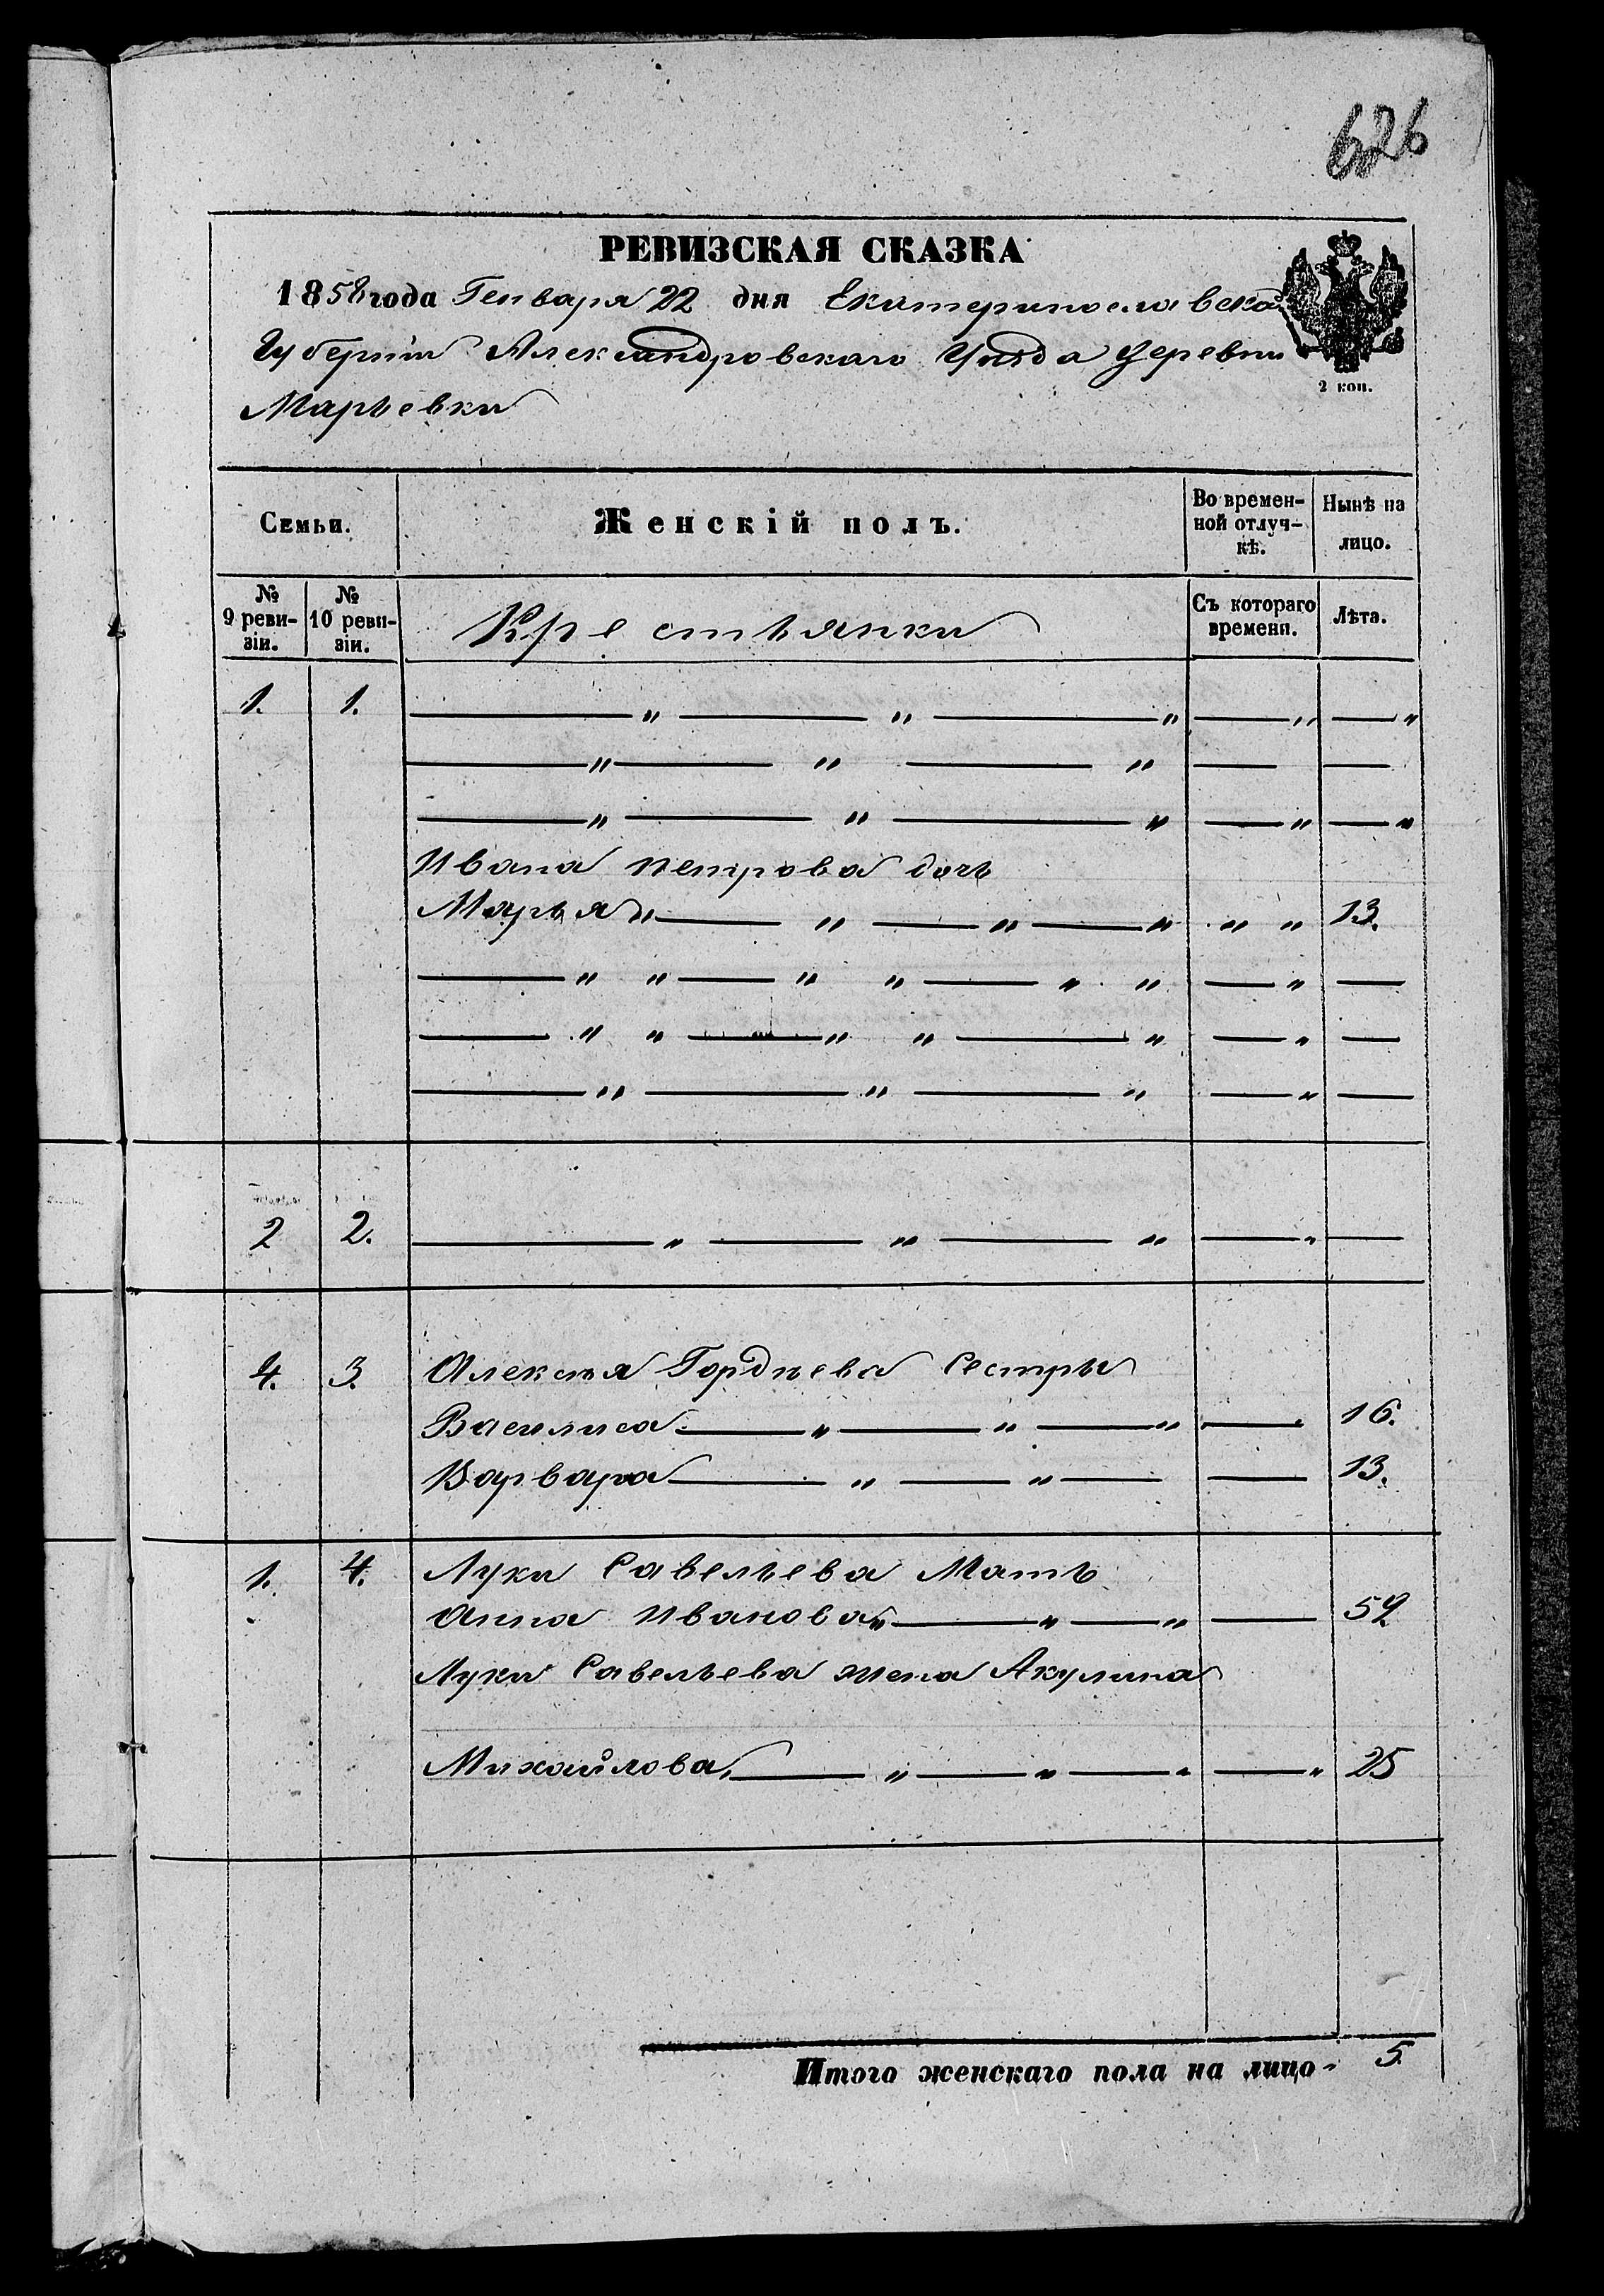 626
РЕВИЗСКАЯ СКАЗКА
1858 года Генваря 22 дня Екатеринославской
Губерніи Александровскаго Уѣзда Деревни
Марьевки
2 коп.
Семьи. Женскій полъ. Во времен-ной отлуч-кѣ. Нынѣ на лицо.
№ 9 реви-зіи. № 10 реви-зіи. Крестьянки Съ котораго времени. Лѣта.
1. 1. — „ — „ — „ — „ — „
— „ — „ — „ — —
— „ — „ — „ — „ — „
Ивана Петрова дочь
Марья „ — „ — „ — „ „ „ 13.
— „ „ — „ „ — „ „ — „ —
— „ „ — „ „ — „ — „ —
— „ — „ — „ — „ —
2 2. — „ — „ — „ — „ —
4. 3. Алексѣя Гордѣева Сестры
Василиса — „ — „ — „ — 16.
Варвара — „ — „ — — 13.
1. 4. Луки Савельева Мать
Анна Иванова „ — „ — „ — 52
Луки Савельева жена Акулина
Михайлова, — „ — „ — „ — „ 25
Итого женскаго пола на лицо - 5.